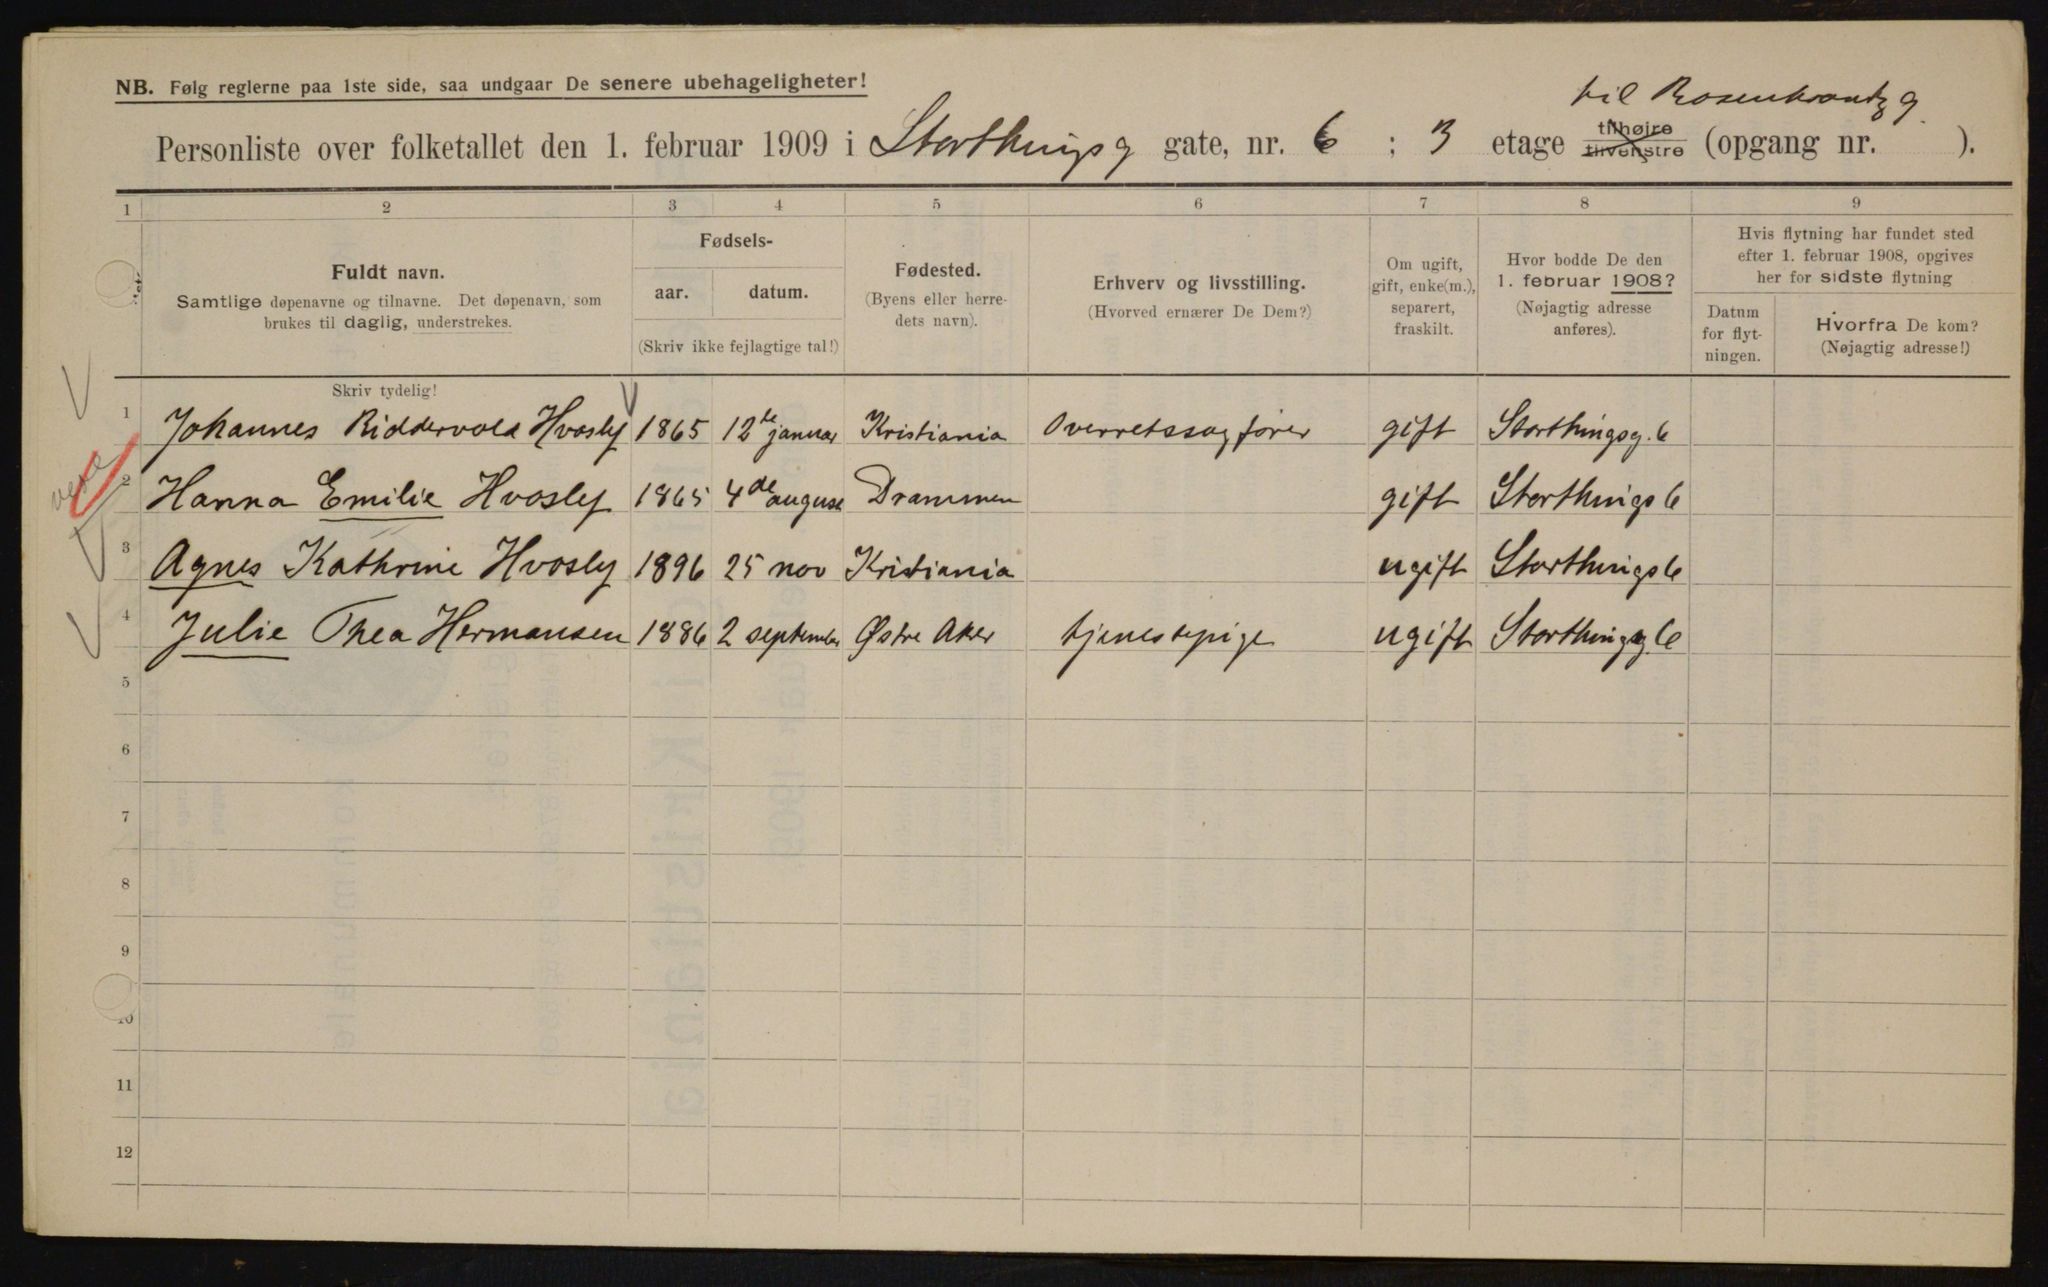 NB. Følg reglerne paa 1ste side, saa undgaar De senere ubehageligheter!
til Rosenkrantzg
Personliste over folketallet den 1. februar 1909 i Storthingsg gate, nr. 6 ; 3 etage tilhøire tilvenstre (opgang nr. ).
1 2 3 4 5 6 7 8 9
Fuldt navn.
Samtlige døpenavne og tilnavne. Det døpenavn, som
brukes til daglig, understrekes.
Fødsels-
aar. datum.
(Skriv ikke fejlagtige tal!)
Fødested.
(Byens eller herre-
dets navn).
Erhverv og livsstilling.
(Hvorved ernærer De Dem?)
Om ugift,
gift, enke(m.),
separert,
fraskilt.
Hvor bodde De den
1. februar 1908?
(Nøjagtig adresse
anføres).
Hvis flytning har fundet sted
efter 1. februar 1908, opgives
her for sidste flytning
Datum
for flyt-
ningen.
Hvorfra De kom?
(Nøjagtig adresse!)
Skriv tydelig!
1 Johannes Riddervold Hvosly 1865 12te januar Kristiania Overretssagfører gift Storthingsg. 6
2 Hanna Emilie Hvosly 1865 4de august Drammen gift Storthings 6
3 Agnes Kathrine Hvosly 1896 25 nov Kristiania ugift Storthings 6
4 Julie Thea Hermansen 1886 2 september Østre Aker tjenestepige ugift Storthingsg. 6
5
6
7
8
9
10
11
12